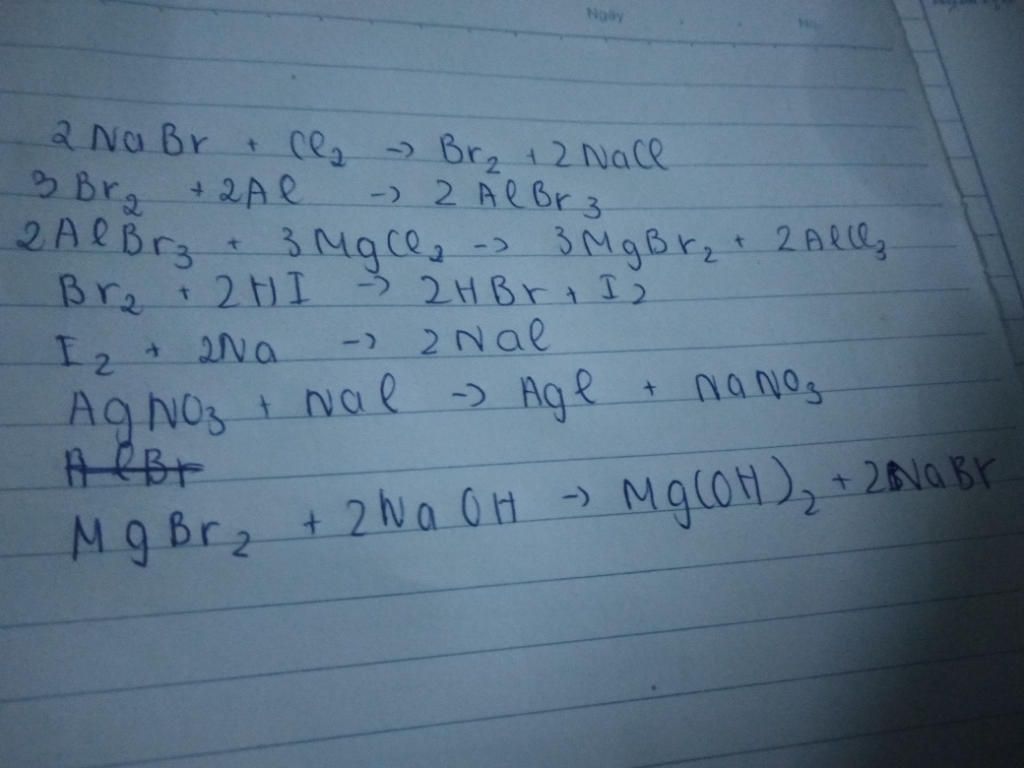 Ngày
No.
2NaBr + Cl₂ → Br₂ + 2NaCl
3Br₂ + 2Al → 2AlBr₃
2AlBr₃ + 3MgCl₂ → 3MgBr₂ + 2AlCl₃
Br₂ + 2HI → 2HBr + I₂
I₂ + 2Na → 2NaI
AgNO₃ + NaI → AgI + NaNO₃
AlBr
MgBr₂ + 2NaOH → Mg(OH)₂ + 2NaBr